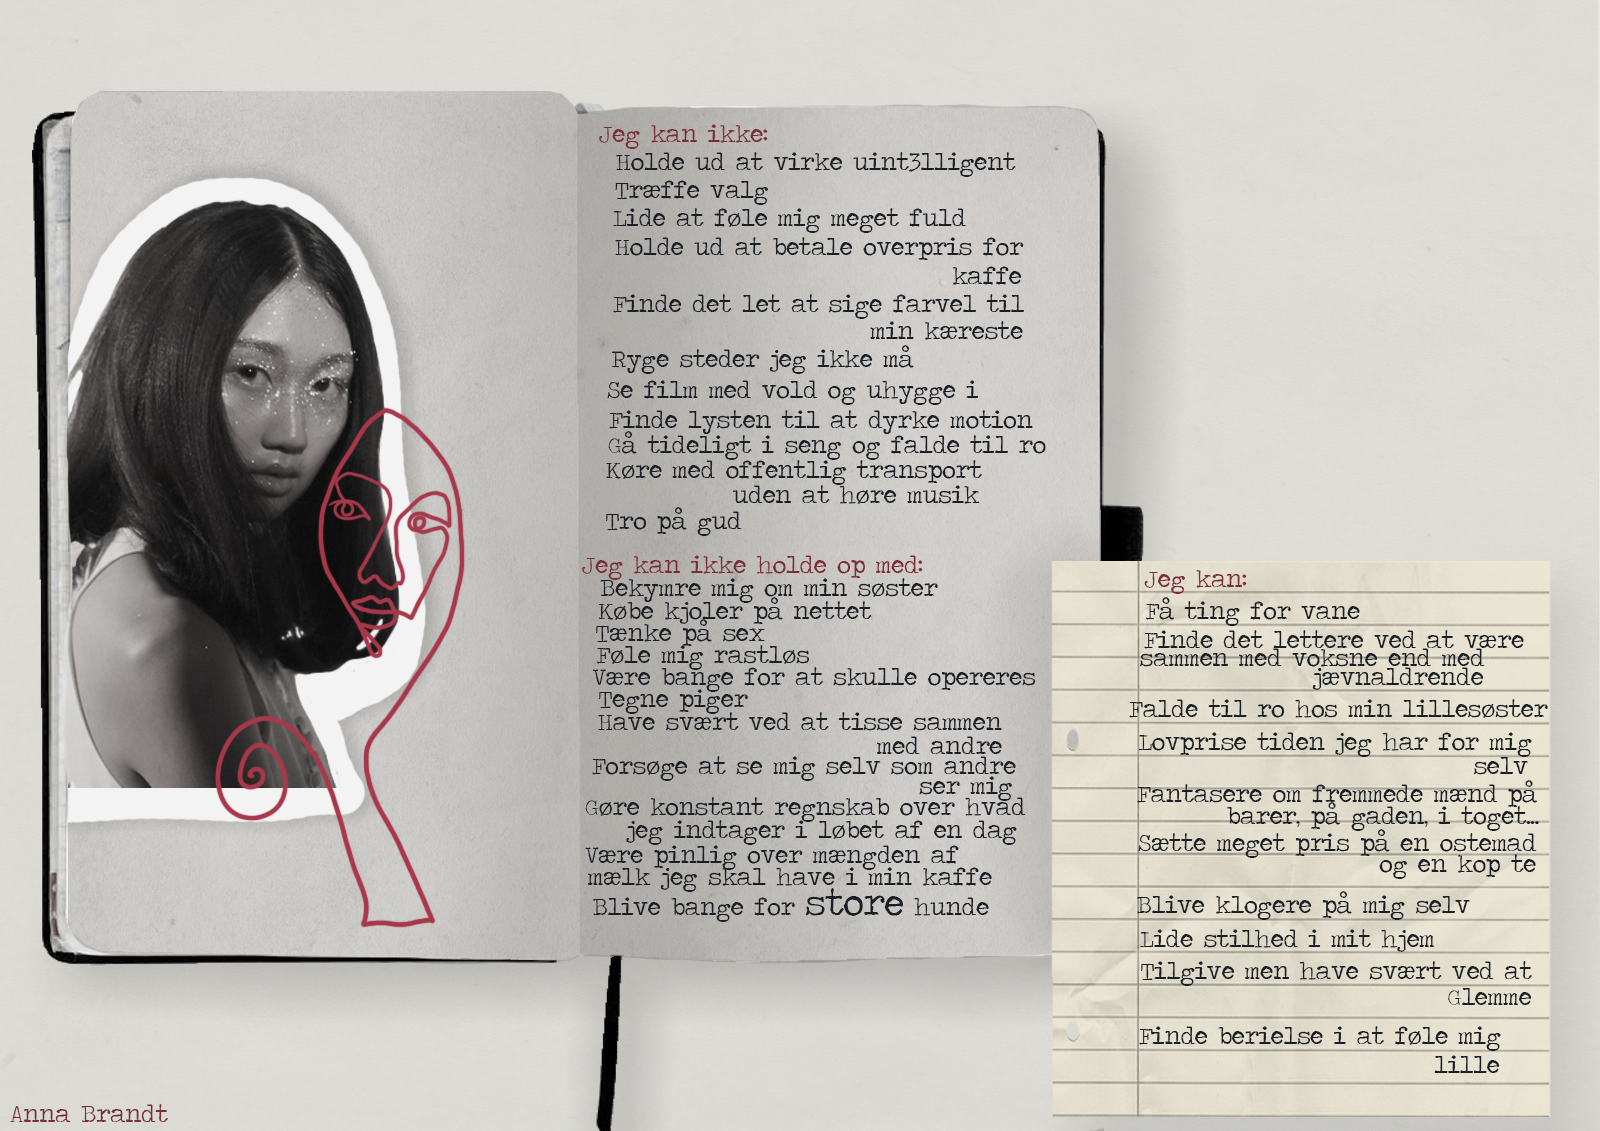 Jeg kan ikke:
Holde ud at virke uint3lligent
Træffe valg
Lide at føle mig meget fuld
Holde ud at betale overpris for
kaffe
Finde det let at sige farvel til
min kæreste
Ryge steder jeg ikke må
Se film med vold og uhygge i
Finde lysten til at dyrke motion
Gå tideligt i seng og falde til ro
Køre med offentlig transport
uden at høre musik
Tro på gud
Jeg kan ikke holde op med:
Bekymre mig om min søster
Købe kjoler på nettet
Tænke på sex
Føle mig rastløs
Være bange for at skulle opereres
Tegne piger
Have svært ved at tisse sammen
med andre
Forsøge at se mig selv som andre
ser mig
Gøre konstant regnskab over hvad
jeg indtager i løbet af en dag
Være pinlig over mængden af
mælk jeg skal have i min kaffe
Blive bange for store hunde
Jeg kan:
Få ting for vane
Finde det lettere ved at være
sammen med voksne end med
jævnaldrende
Falde til ro hos min lillesøster
Lovprise tiden jeg har for mig
selv
Fantasere om fremmede mænd på
barer, på gaden, i toget...
Sætte meget pris på en ostemad
og en kop te
Blive klogere på mig selv
Lide stilhed i mit hjem
Tilgive men have svært ved at
Glemme
Finde berielse i at føle mig
lille
Anna Brandt